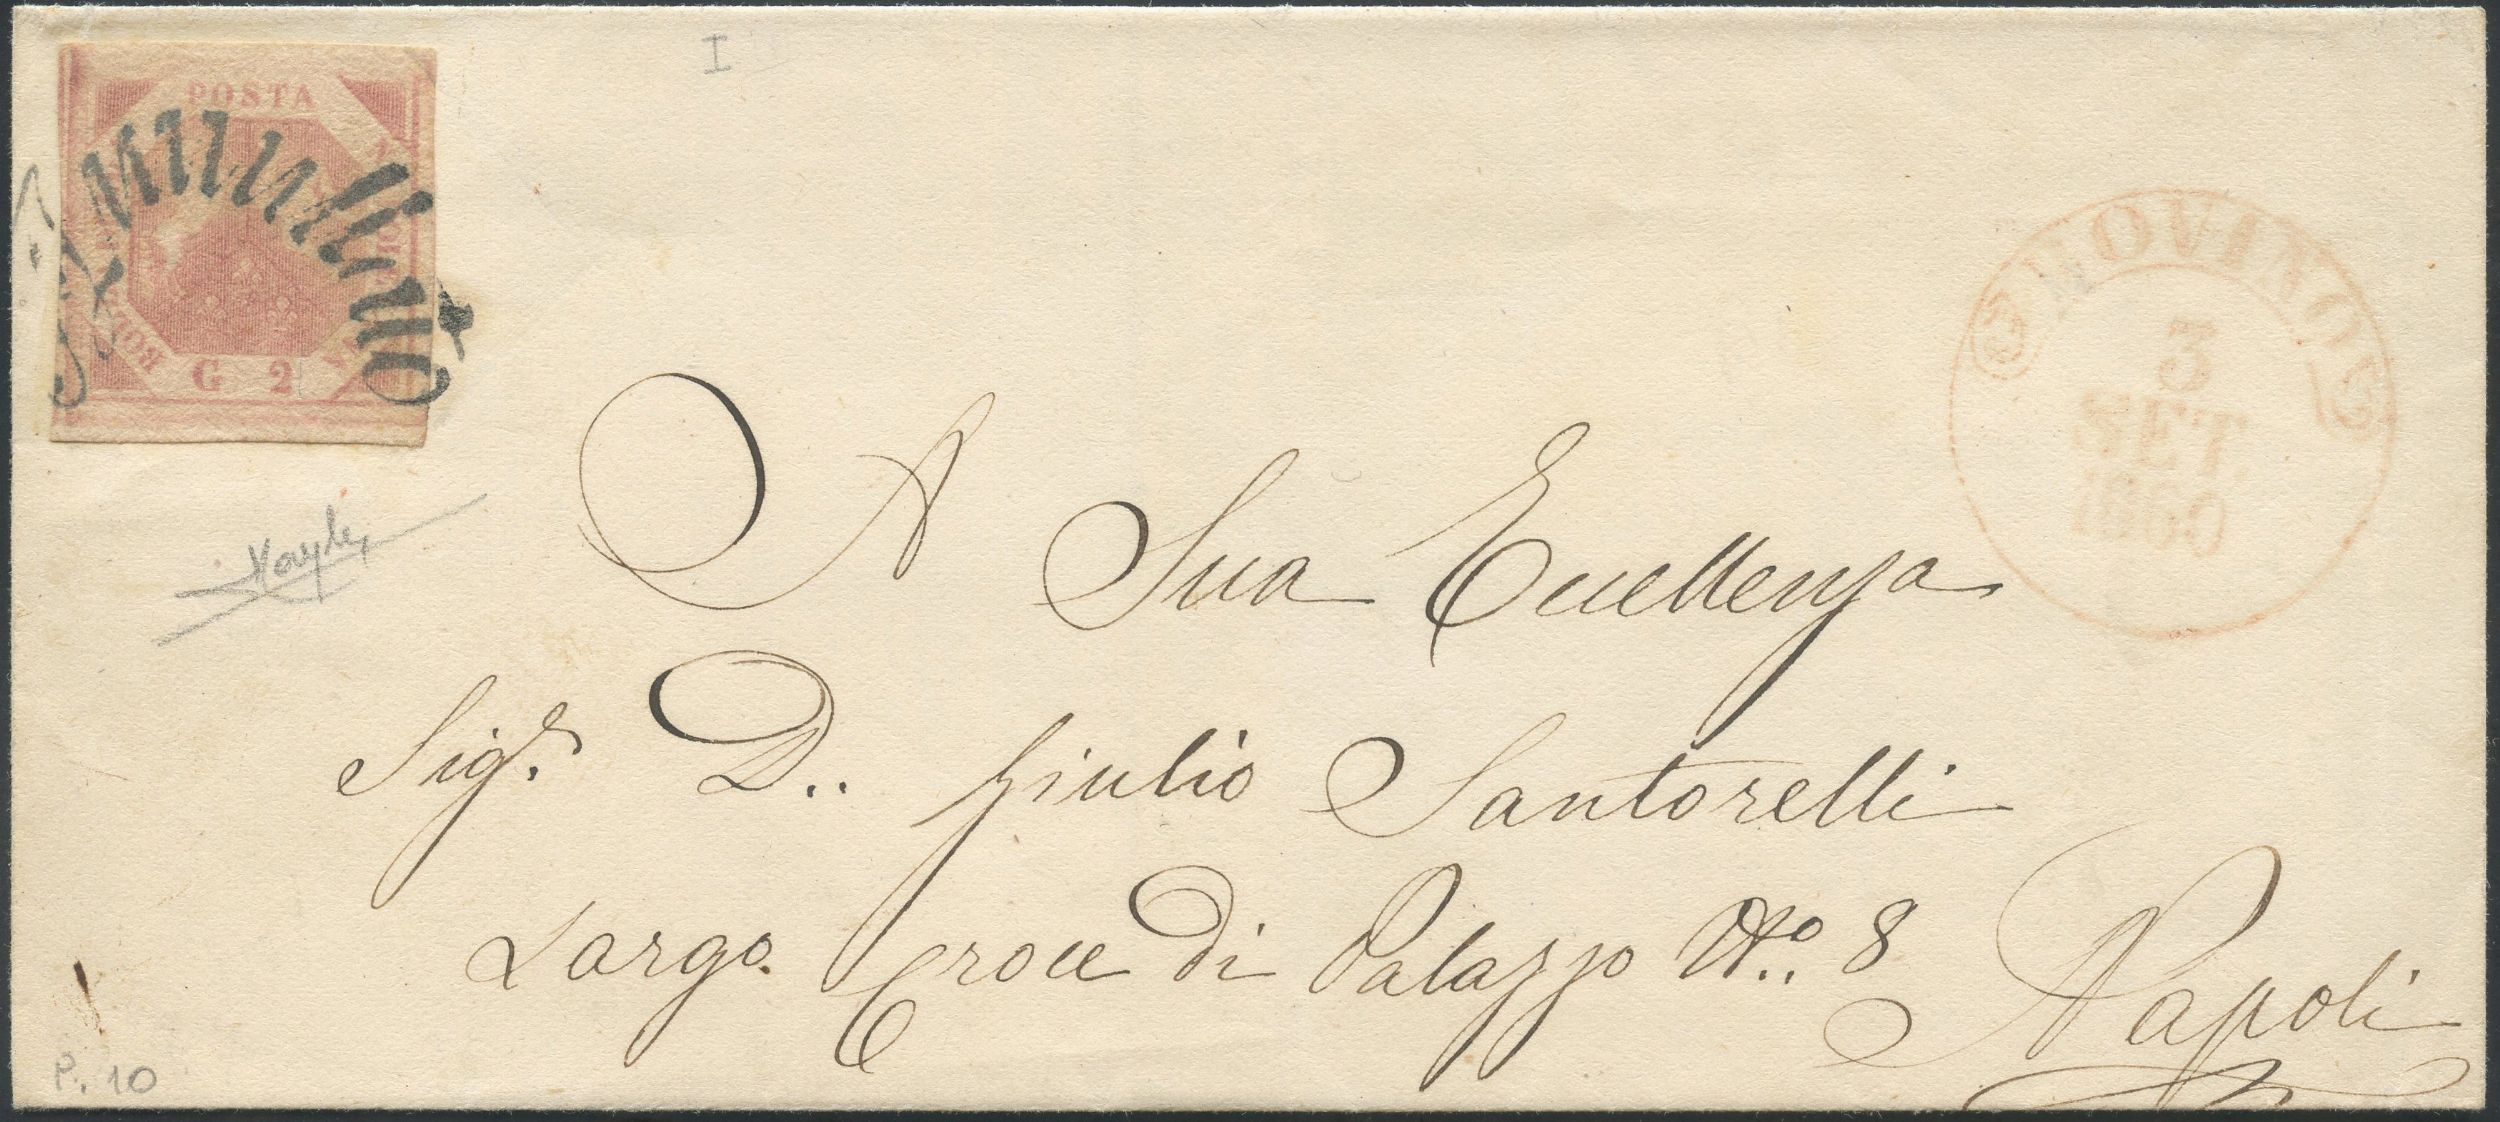 I
POSTA
G 2
Annullato
BOVINO
3
SET
1860
A Sua Eccellenza
Sig.r D.. Giulio Santorelli
Largo Croce di Palazzo No.. 8
Napoli
P. 10